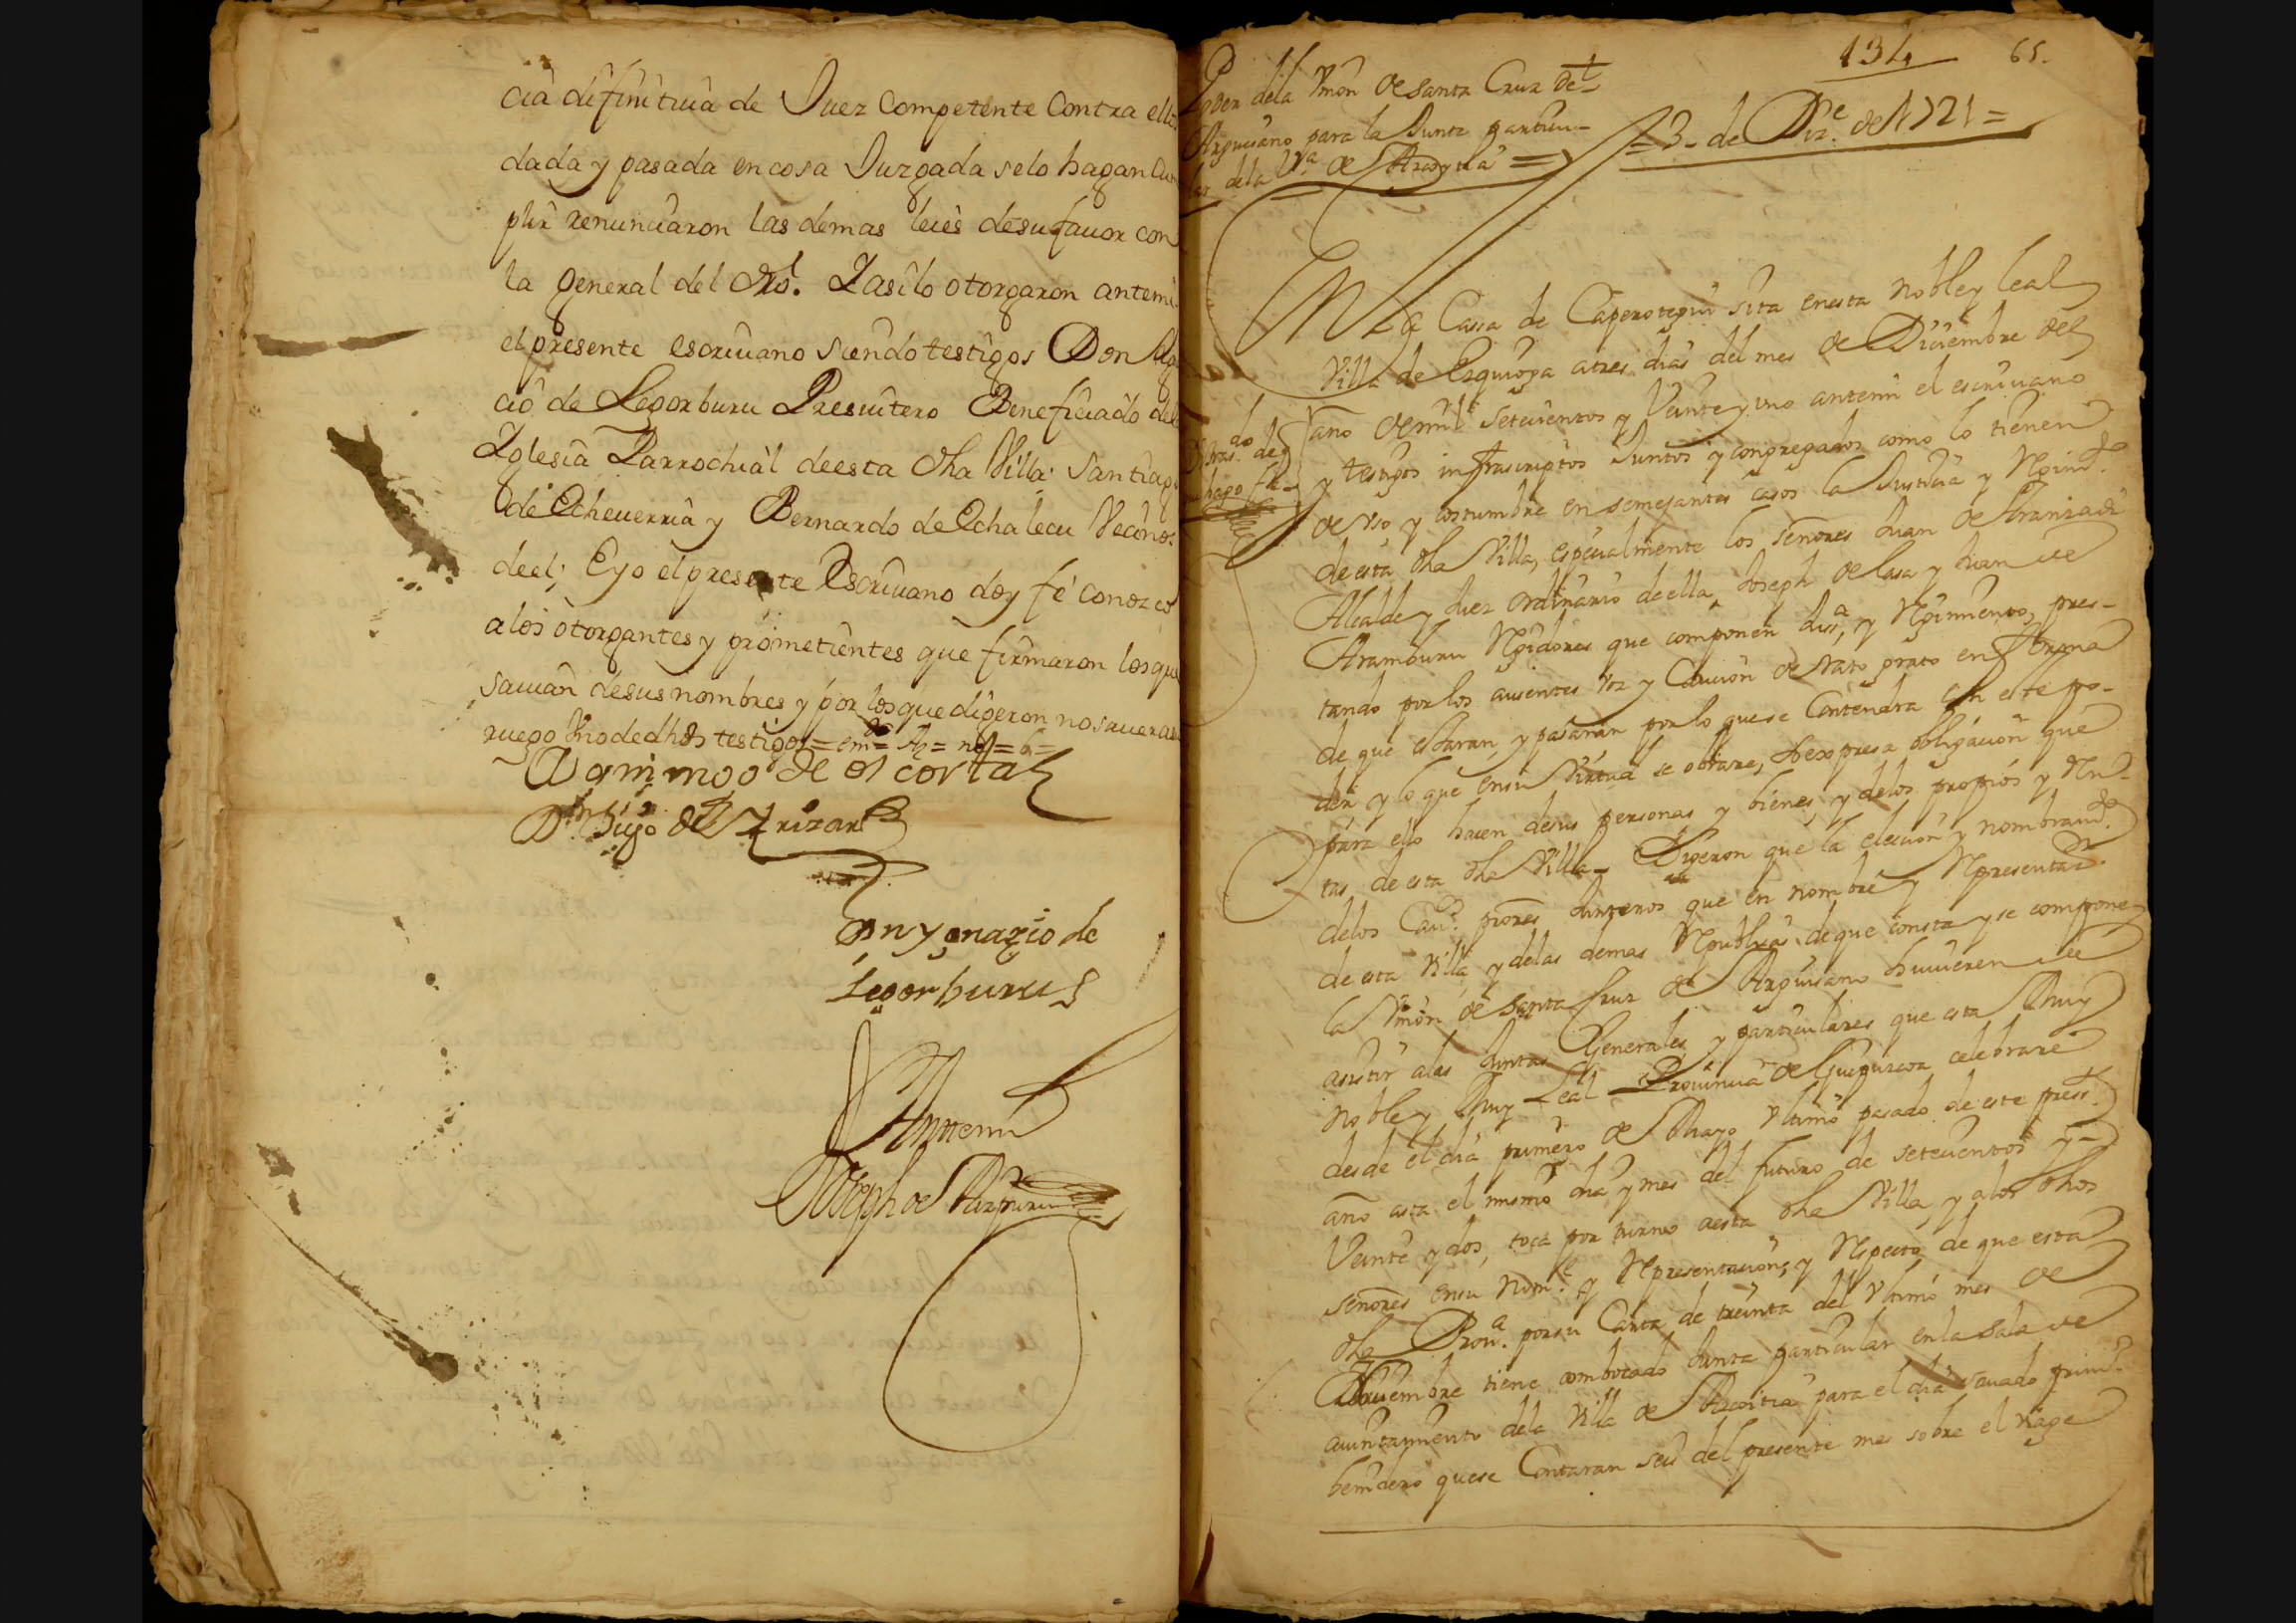 cia difinitiua de Juez Competente Contra ellos
dada y pasada en cosa Juzgada selo hagan Cum
plir renunciaron las demas leies desu fauor con
la general del dro. Y asi lo otorgaron antemi
el presente escriuano siendo testigos Don Ygna
cio de Legorburu Presuitero Beneficiado dela
Yglesia Parrochial de esta dha Villa: Santiago
de Echeuerria y Bernardo de Echalecu Vecinos
de el; E yo el presente Escriuano doy fé conozco
alos otorgantes y prometientes que firmaron los que
sauian desus nombres y por los que digeron no sauer a su
ruego Vno de dhos testigos =
Domingo de el corta
Dn Diego de Yrizar
Dn ygnazio de
Legorburu
Antemi
Joseph de Aizpuru
134 65.
Poder dela Vnion de Santa Cruz de
Arguisano para la Junta particu-
lar dela Va de Azcoytia =
= 3 - de Dize. de 1721 =
En La Cassa de Caperotegui sita en esta noble y leal
Villa de Ezquioga a tres dias del mes de Diciembre del
año de mil setecientos y Veinte y vno antemi el escriuano
y testigos infrascriptos Juntos y congregados como lo tienen
de vso y costumbre en semejantes casos la Justicia y Regimto.
de esta dha Villa, especialmente los señores Juan de Aranzadi
Alcalde y Juez ordinario de ella, Joseph de Lasa y Juan de
Aramburu Regidores que componen Jusa, y Regimiento, pres-
tando por los ausentes voz y Caucion de rato grato en forma
de que estaran, y pasaran por lo que se Contendra en este po-
der, y lo que en su Virtud se obrare, so expresa obligacion que
para ello hacen desus personas y bienes, y delos propios y Ren-
tas de esta dha Villa - Digeron que la eleccion y nombramto.
delos Cauos. prores. Junteros que en nombre y Representazn.
de esta Villa, y delas demas Republicas de que consta y se compone
la Vnion de Santa Cruz de Arguisano huuieren de
asistir alas Juntas Generales, y particulares que esta Muy
Noble y Muy Leal Prouincia de Guipuzcoa celebrare
desde el dia primero de Mayo vltimo pasado de este prest.
año asta el mismo dia y mes del futuro de setecientos y -
Veinte y dos, toca por turno a esta dha Villa, y alos dhos
señores en su Nome. y Representacion, y Respecto, de que esta
dha Proua. por su Carta de treinta del vltimo mes de
Nouiembre tiene combocado Junta particular en la Sala de
aiuntamiento dela Villa de Azcoitia para el dia sauado primo.
benidero que se Contaran seis del presente mes sobre el viage